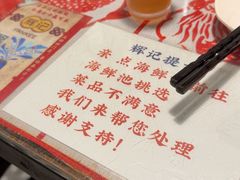 辉记提
卖点海鲜 前往
海鲜池挑选
菜品不满意
我们来帮您处理
感谢支持！